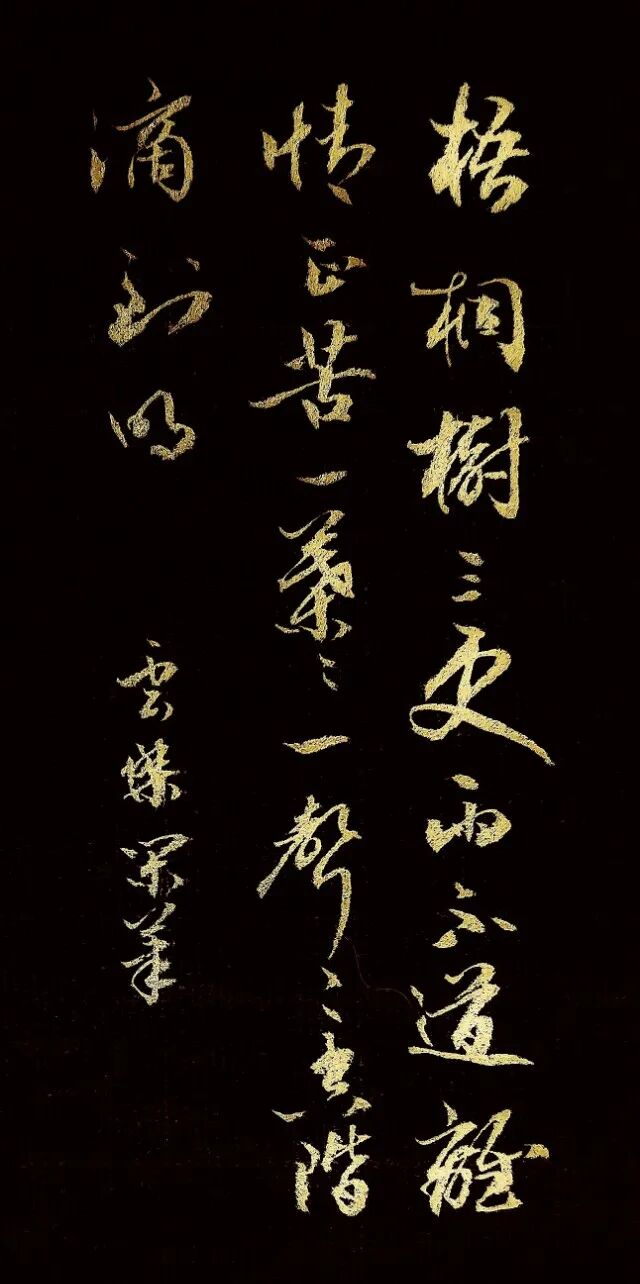 梧桐樹三更雨不道離
情正苦一葉〻一聲〻空階
滴到明
雲傑筆